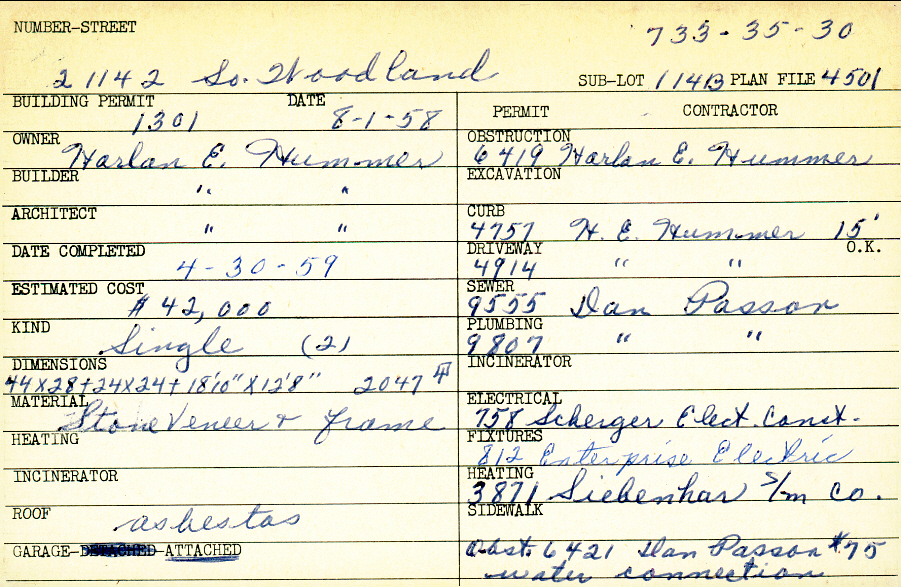 NUMBER-STREET
733-35-30
21142 So. Woodland
SUB-LOT 114B PLAN FILE 4501
BUILDING PERMIT DATE
1301 8-1-58
OWNER
Harlan E. Hummer
BUILDER
" "
ARCHITECT
" "
DATE COMPLETED
4-30-59
ESTIMATED COST
$ 42,000
KIND
Single (2)
DIMENSIONS
44X28+24X24+18'10"X12'8" 2047
MATERIAL
Stone Veneer & frame
HEATING
INCINERATOR
ROOF
asbestos
GARAGE-DETACHED-ATTACHED
PERMIT CONTRACTOR
OBSTRUCTION
6419 Harlan E. Hummer
EXCAVATION
CURB
4757 H. E. Hummer 15'
O.K.
DRIVEWAY
4914 " "
SEWER
9555 Dan Passon
PLUMBING
9807 " "
INCINERATOR
ELECTRICAL
758 Scherger Elect. Const.
FIXTURES
812 Enterprise Electric
HEATING
3871 Siebenhar S/m Co.
SIDEWALK
Obst. 6421 Dan Passon #75
water connection